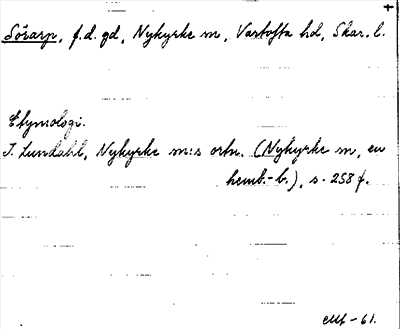 Sörarp, f.d. gd, Nykyrke sn, Vartofta hd, Skar. l.
Etymologi.
I. Lundahl, Nykyrke sn:s ortn. (Nykyrke sn, en
hemb.-b.), s. 258 f.
-61.